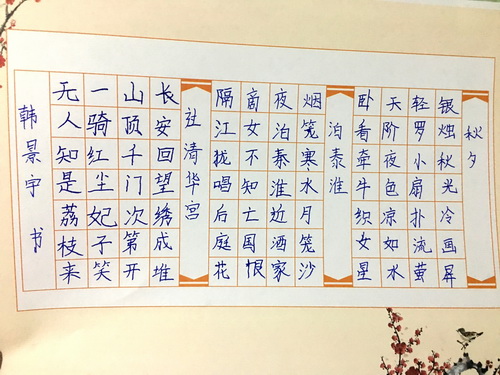 秋夕
银烛秋光冷画屏
轻罗小扇扑流萤
天阶夜色凉如水
卧看牵牛织女星
泊泰淮
烟笼寒水月笼沙
夜泊泰淮近酒家
商女不知亡国恨
隔江犹唱后庭花
过清华宫
长安回望绣成堆
山顶千门次第开
一骑红尘妃子笑
无人知是荔枝来
韩景宇书